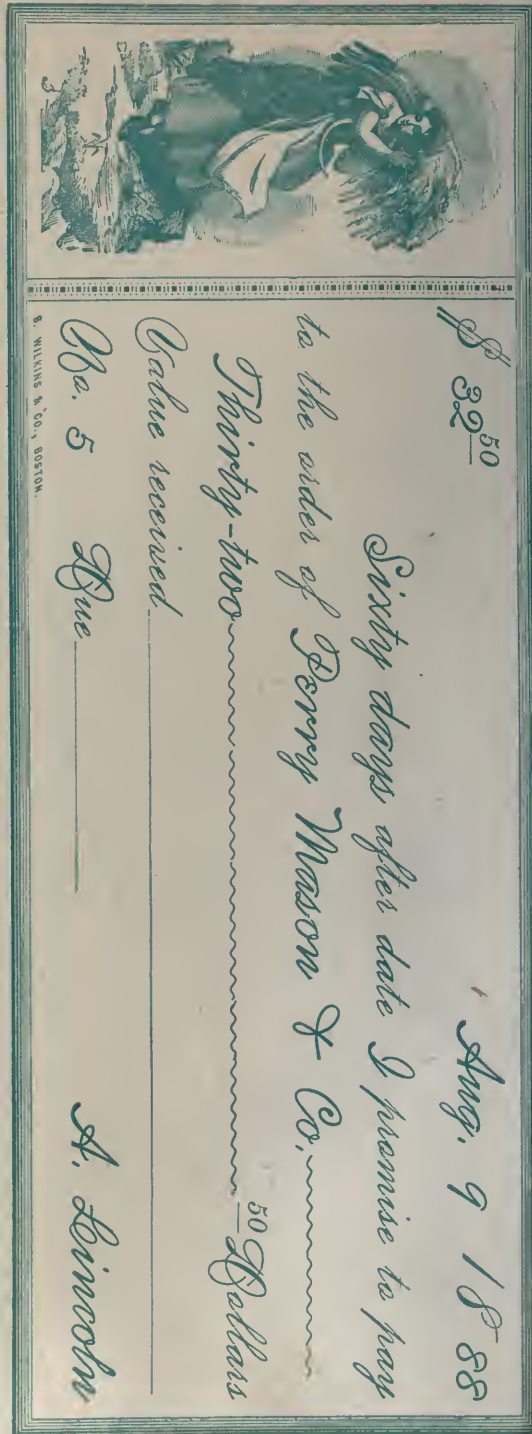 $ 32 50 Aug. 9 1888
Sixty days after date I promise to pay
to the order of Perry Mason & Co.
Thirty-two 50 Dollars
Value received
No. 5 Due A. Lincoln
B. WILKINS & CO., BOSTON.